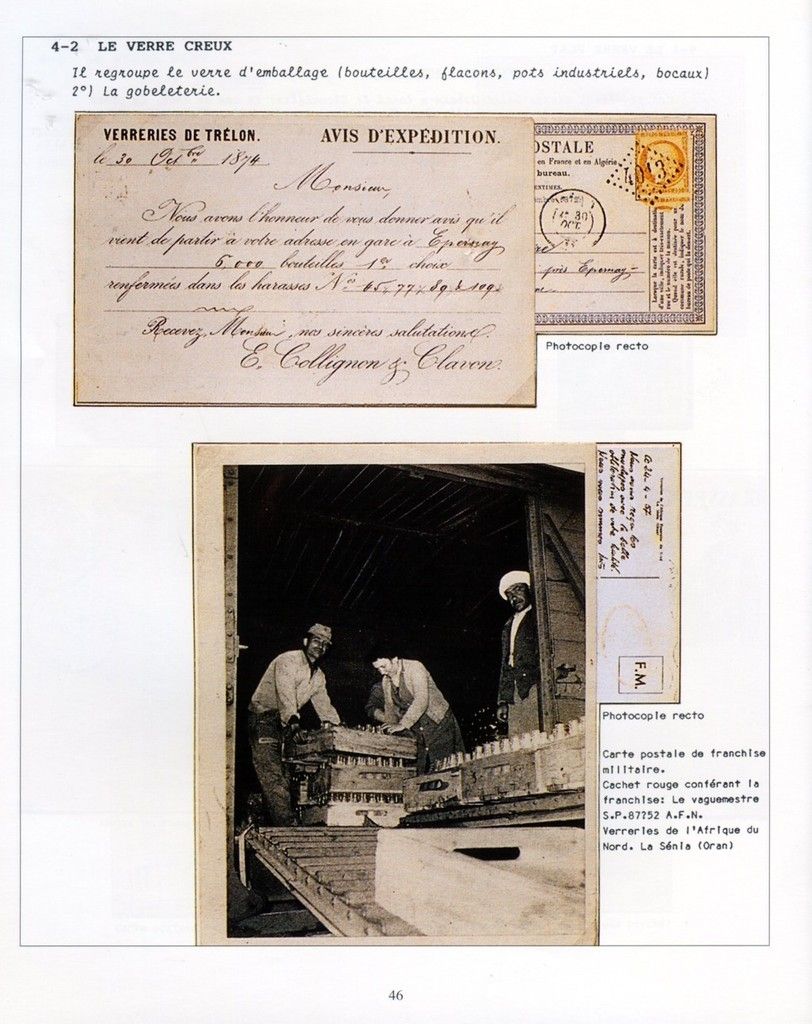 4-2 LE VERRE CREUX
Il regroupe le verre d'emballage (bouteilles, flacons, pots industriels, bocaux)
2°) La gobeleterie.
VERRERIES DE TRÉLON. AVIS D'EXPÉDITION.
le 30 Octbre 1874
Monsieur,
Nous avons l'honneur de vous donner avis qu'il
vient de partir à votre adresse en gare à Epernay
6,000 bouteilles 1er choix
renfermées dans les harasses Nos 65, 77, 89 & 109
Recevez, Monsieur, nos sincères salutations.
E. Collignon & Clavon.
OSTALE
en France et en Algérie
bureau.
4013
30
OCT
près Epernay
Photocopie recto
Le 24-4-57
Nous avons reçu
avec la belle
oblitération de votre
F.M.
Photocopie recto
Carte postale de franchise
militaire.
Cachet rouge conférant la
franchise: Le vaguemestre
S.P.87752 A.F.N.
Verreries de l'Afrique du
Nord. La Sénia (Oran)
46